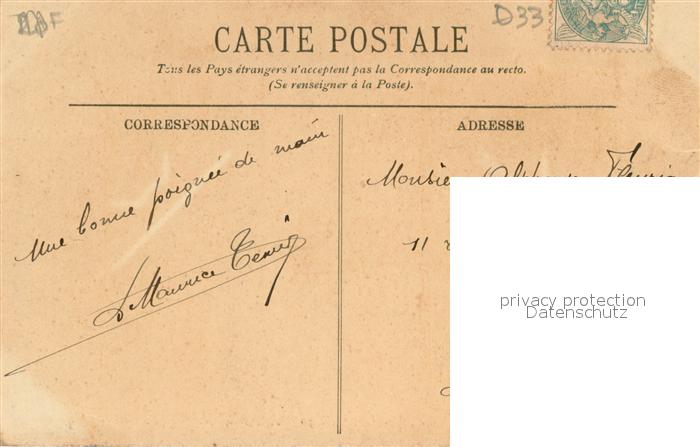 D33
CARTE POSTALE
Tous les Pays étrangers n'acceptent pas la Correspondance au recto.
(Se renseigner à la Poste).
CORRESPONDANCE
Une bonne poignée de main
Maurice
ADRESSE
11
privacy protection
Datenschutz